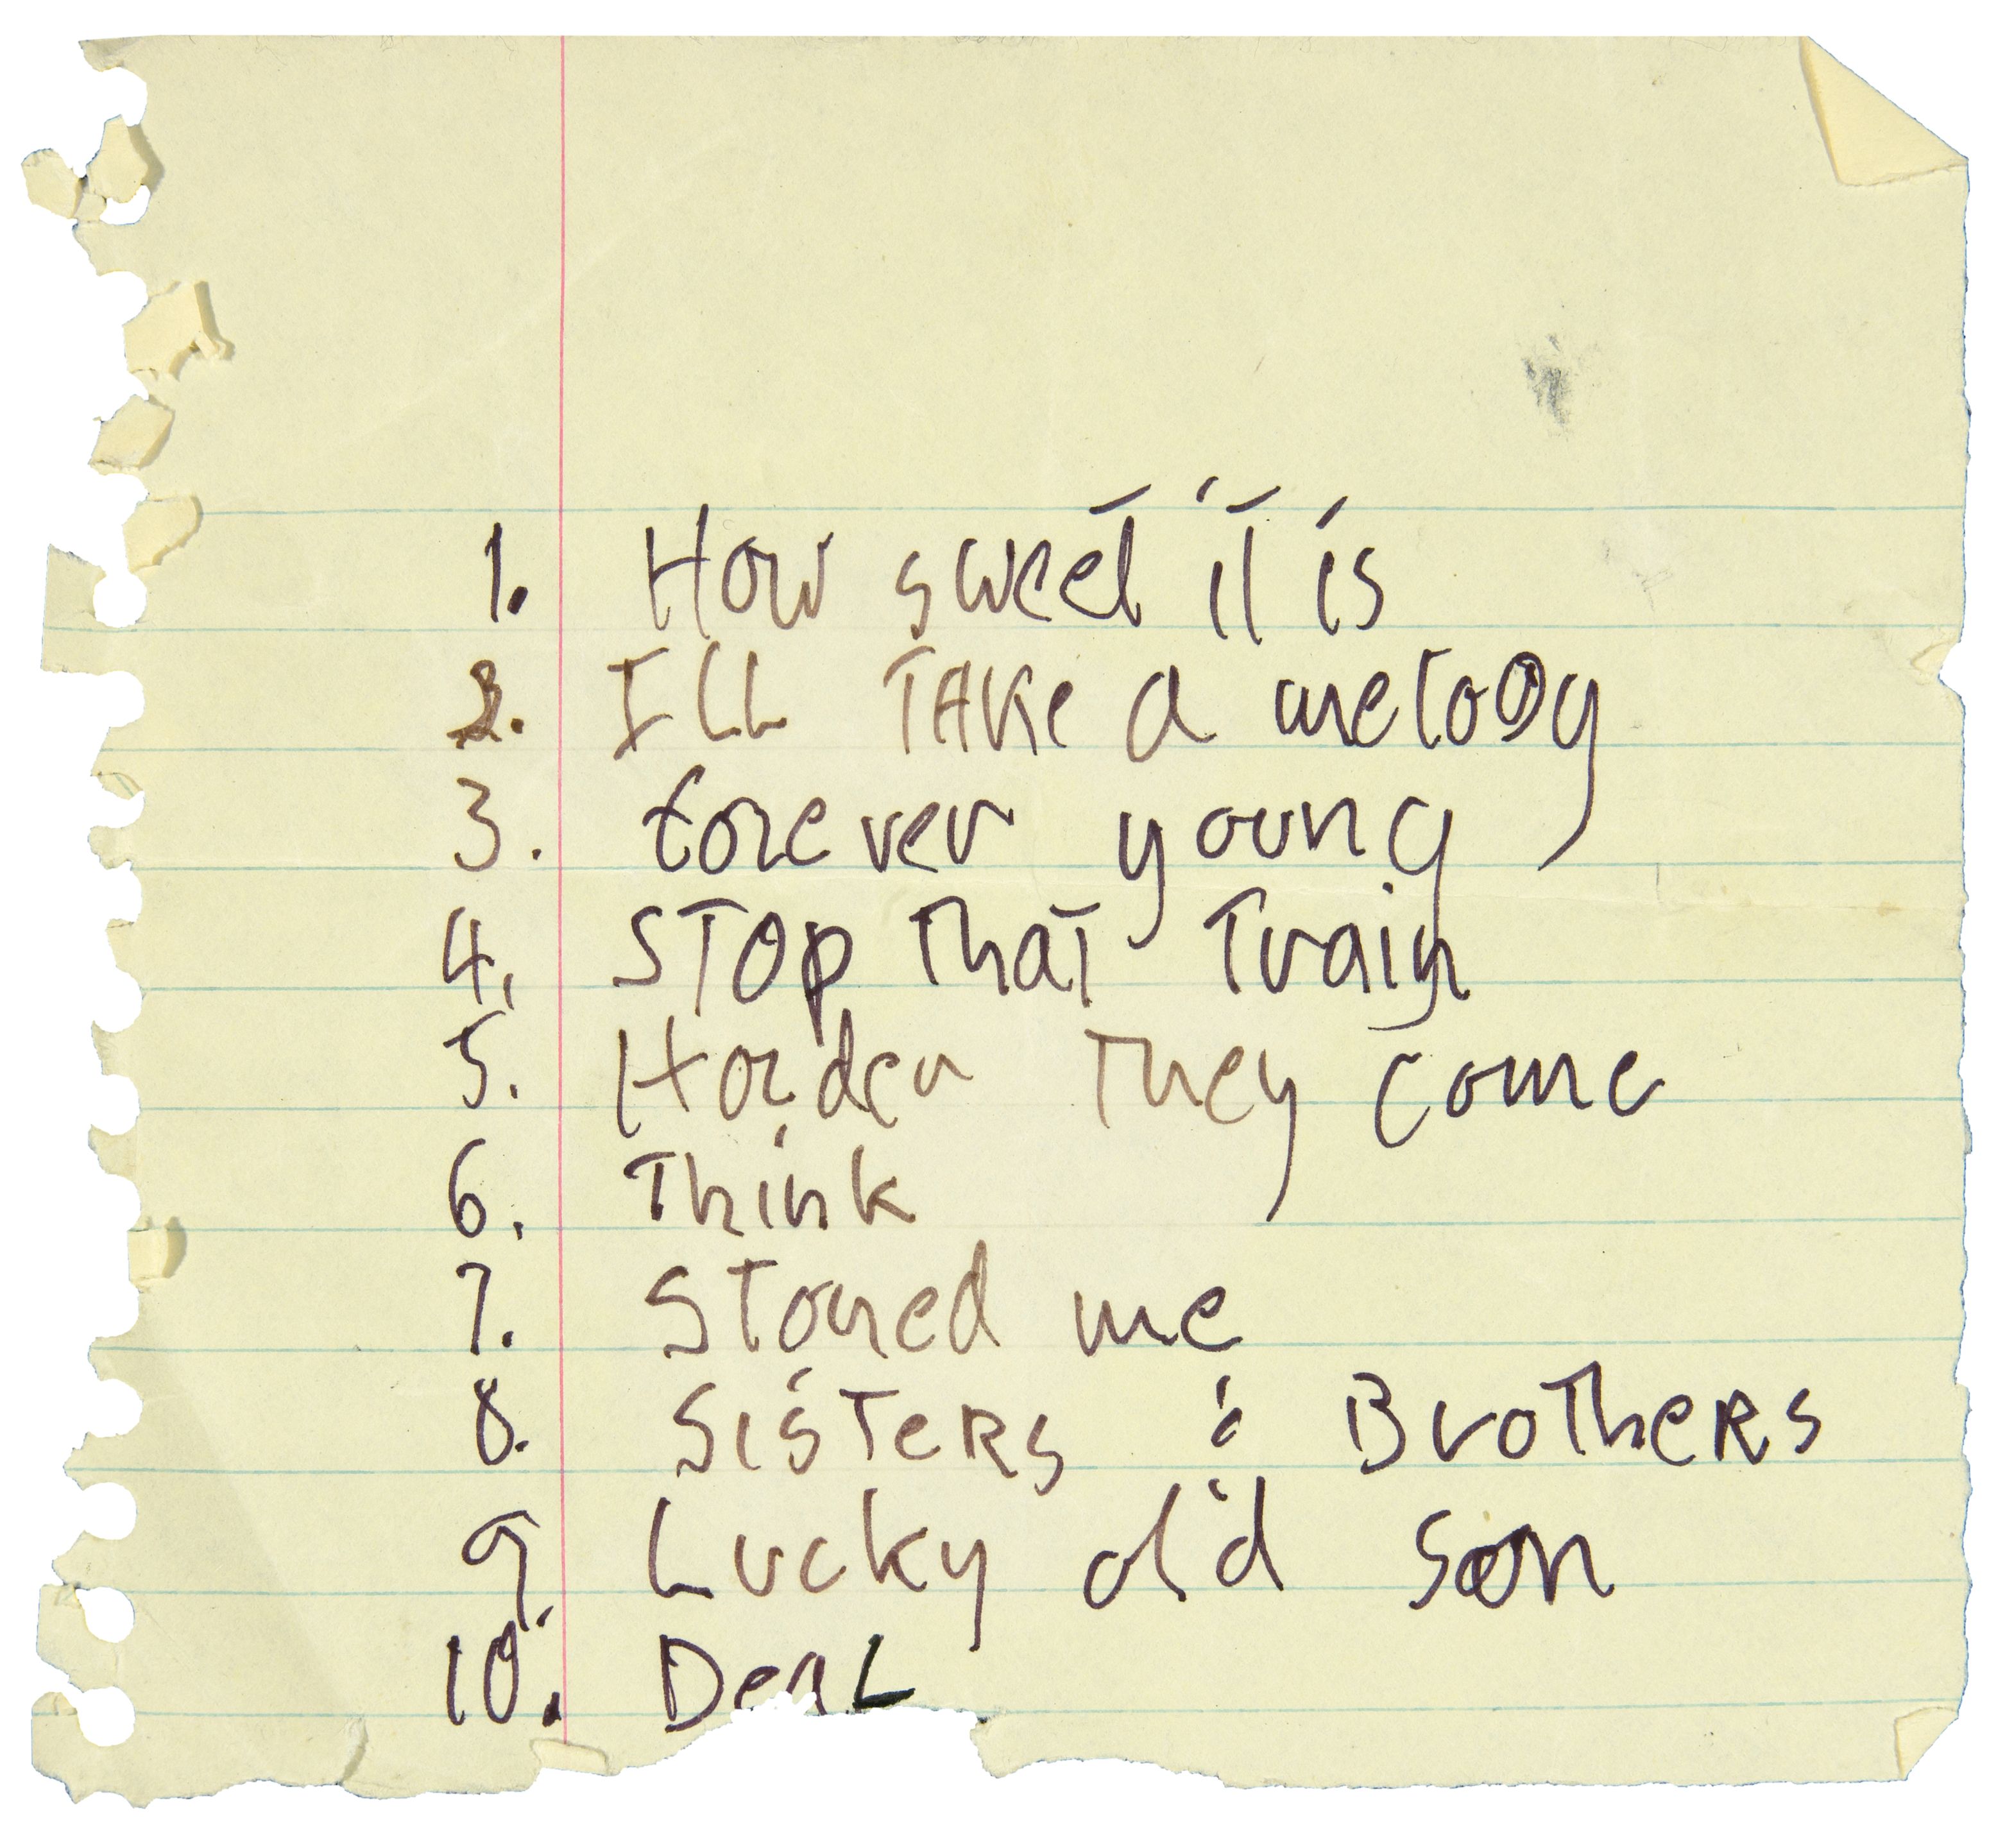 1. How sweet it is
2. ILL TAKe a melody
3. forever young
4. STOp That Train
5. Horder They come
6. Think
7. Stoned me
8. SisTeRs & BroTheRs
9. Lucky old son
10. DeaL